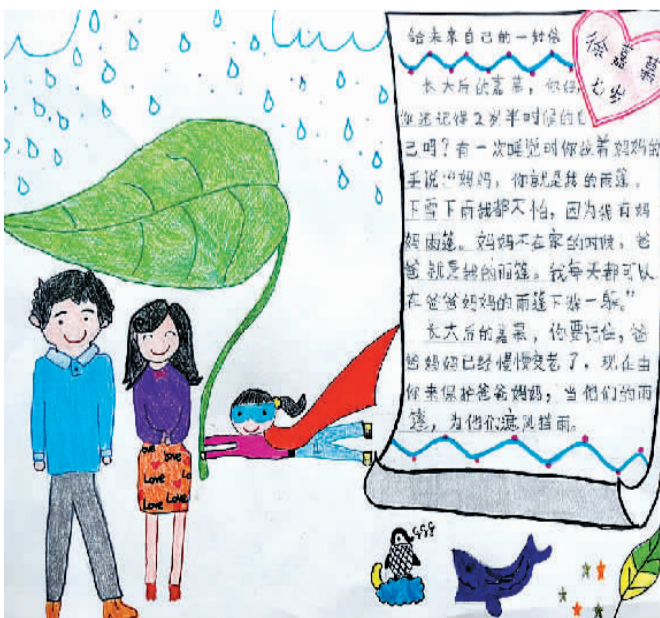 给未来自己的一封信
徐嘉慕
七岁
长大后的嘉慕，你好，
你还记得2岁半时候的自
己吗？有一次睡觉时你拉着妈妈的
手说："妈妈，你就是我的雨篷。
下雪下雨我都不怕，因为我有妈
妈雨篷。妈妈不在家的时候，爸
爸就是我的雨篷。我每天都可以
在爸爸妈妈的雨篷下躲一躲。"
长大后的嘉慕，你要记住，爸
爸妈妈已经慢慢变老了，现在由
你来保护爸爸妈妈，当他们的雨
篷，为他们遮风挡雨。
ove
love
Love
Lo
Love
Love